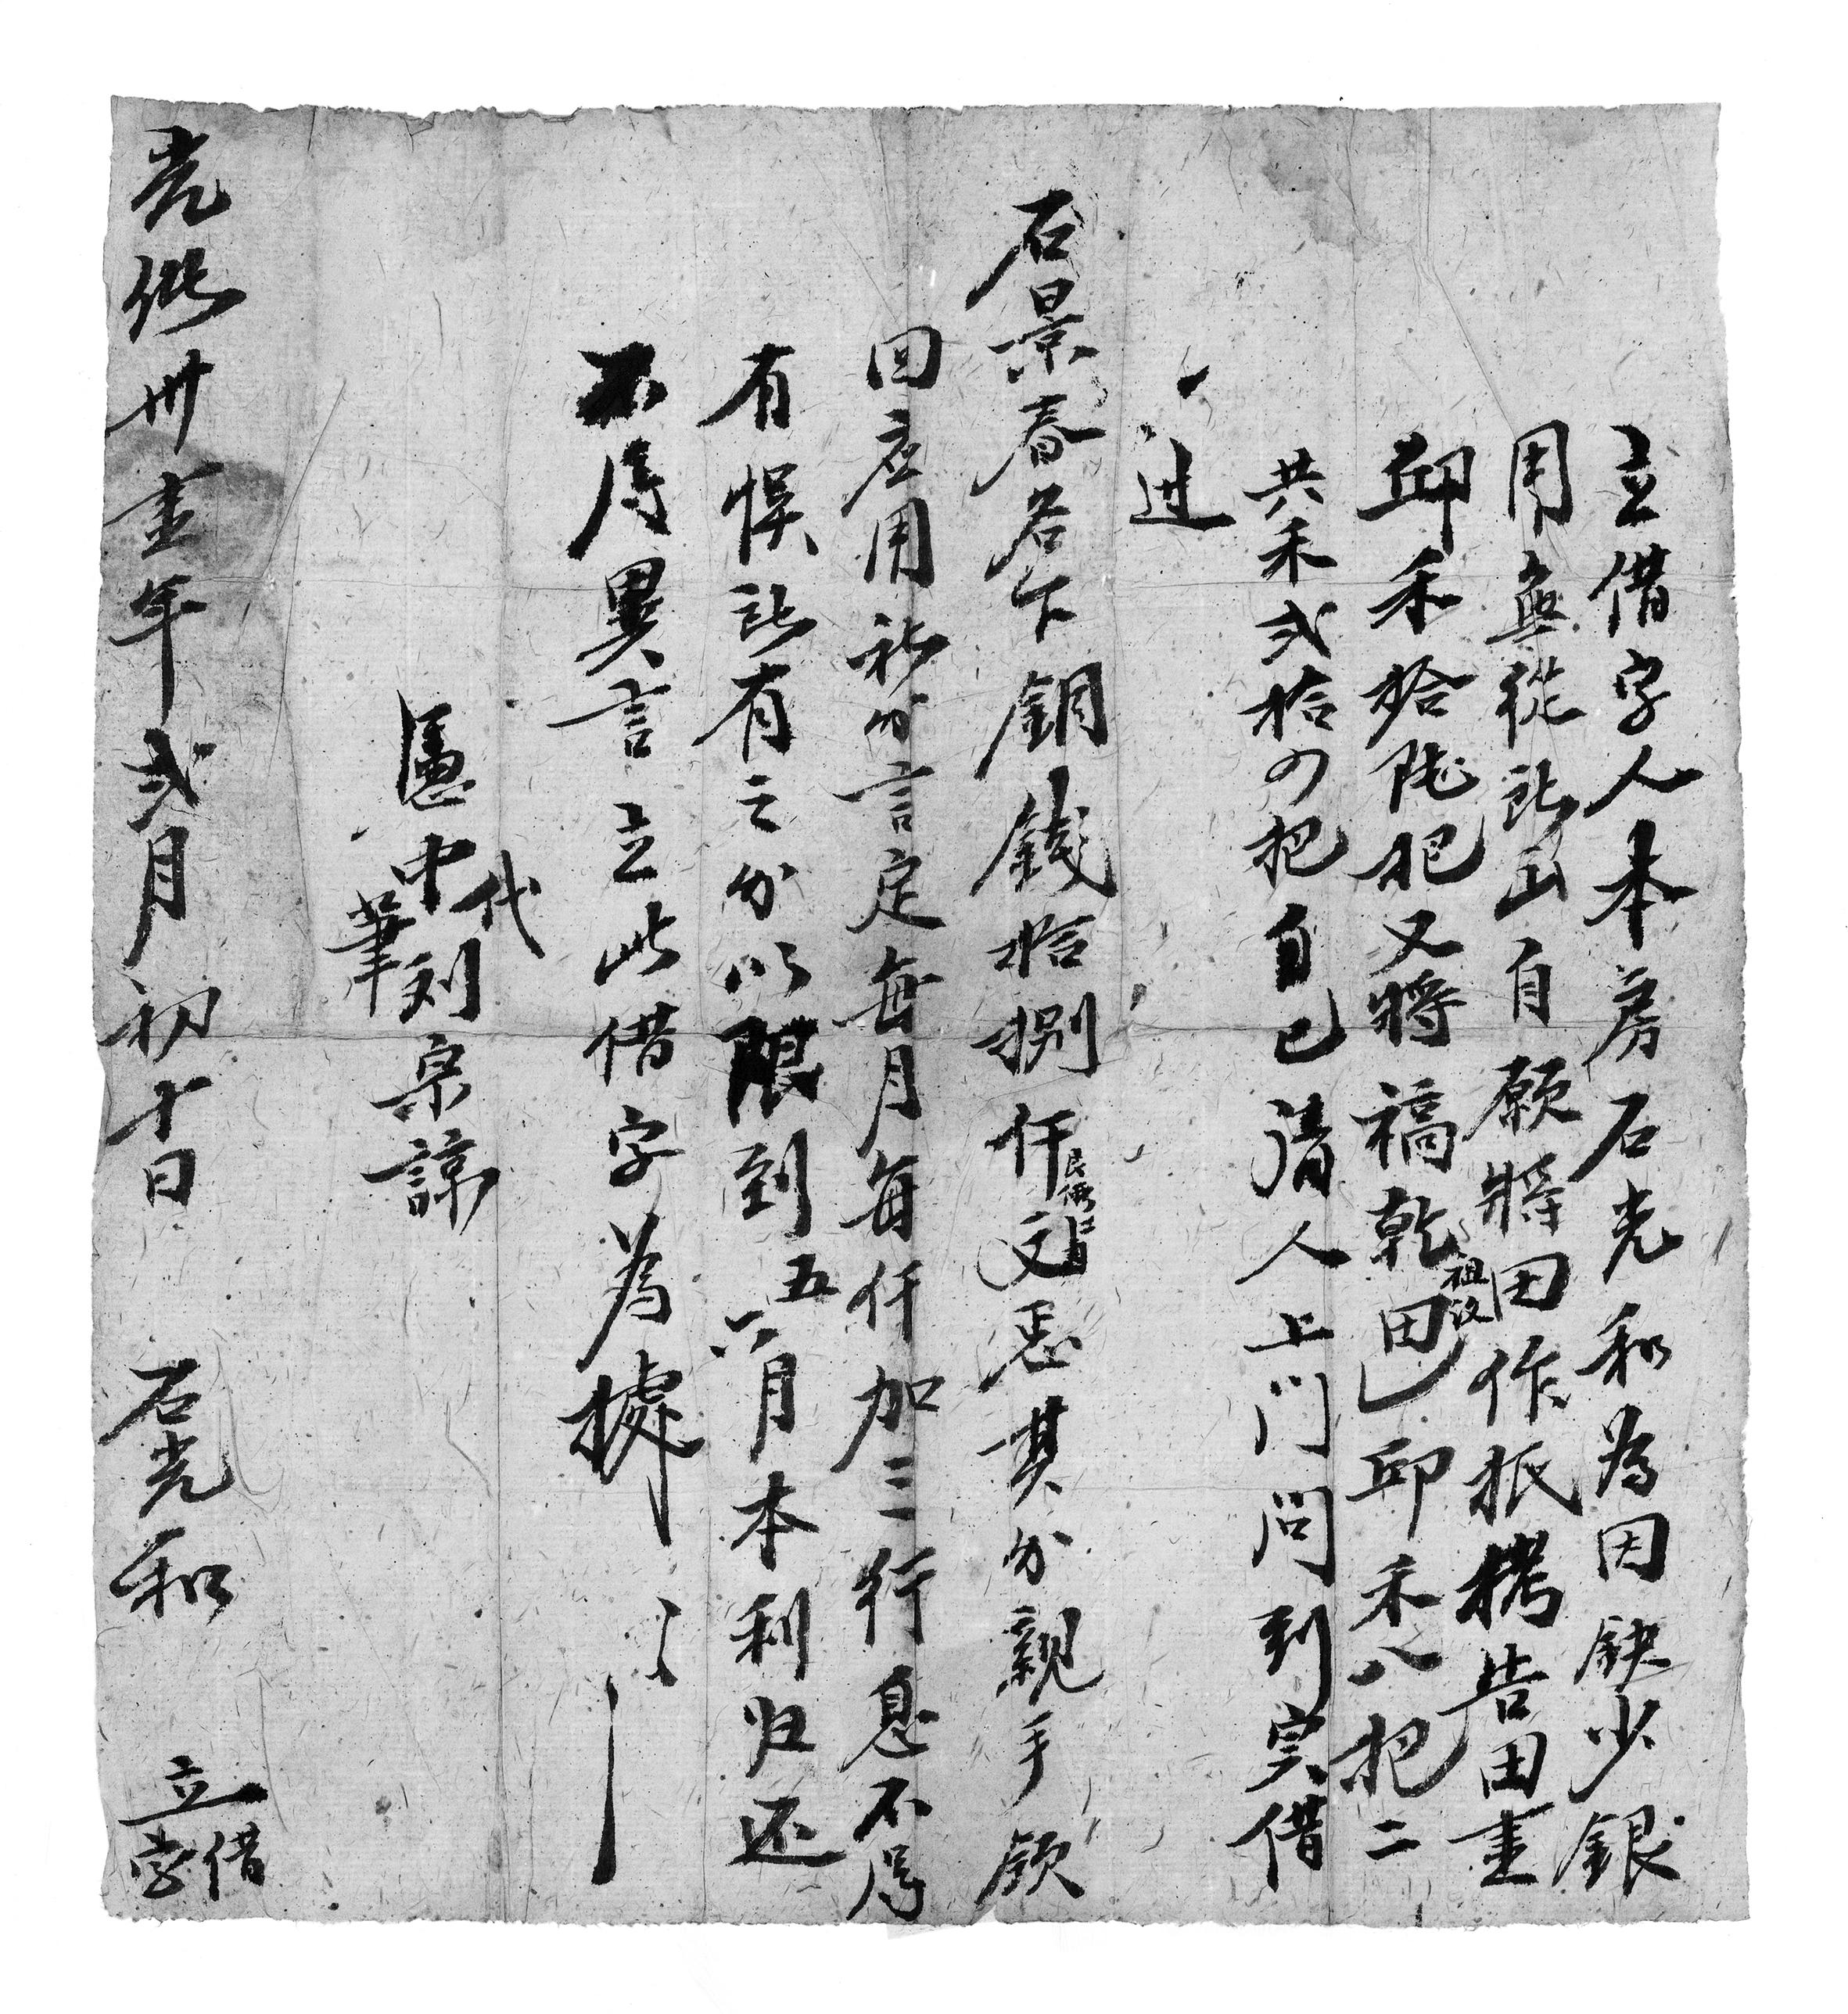 立借字人本房石光和為因缺少銀
用無從訨出自願將田作抵拷告田壹
邱禾拾陸把又將禞乾田乙邱禾八把二
共禾弍拾四把自己请人上门问到实借
过
石景春名下銅錢拾捌仟文悉其分親手領
回应用訨分言定每月每仟加三行息不得
有悮訨有之分以限到五六月本利归还
不得異言立此借字為據
憑中刘宗諒
代筆
光绪卅壹年弍月初十日 石光和 立借字